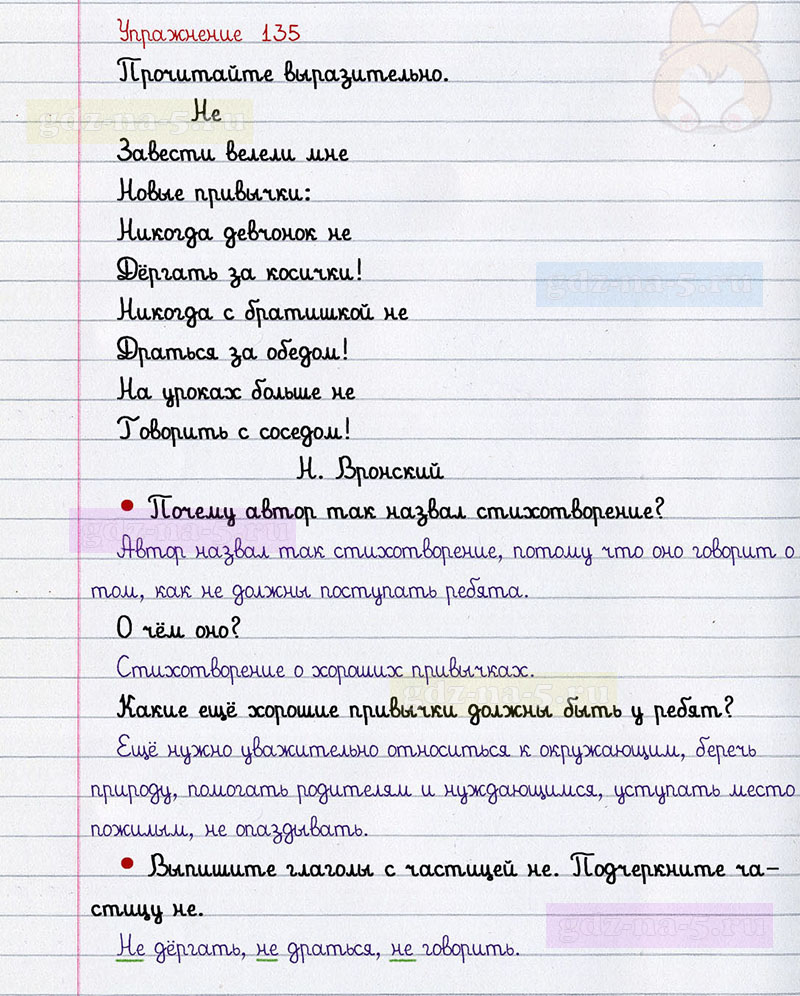 Упражнение 135
Прочитайте выразительно.
Не
gdz-na-5.ru
Завести велели мне
Новые привычки:
Никогда девчонок не
Дёргать за косички!
gdz-na-5.ru
Никогда с братишкой не
Драться за обедом!
На уроках больше не
Говорить с соседом!
Н. Вронский
• Почему автор так назвал стихотворение?
gdz-na-5.ru
Автор назвал так стихотворение, потому что оно говорит о
том, как не должны поступать ребята.
О чём оно?
Стихотворение о хороших привычках.
gdz-na-5.ru
Какие ещё хорошие привычки должны быть у ребят?
Ещё нужно уважительно относиться к окружающим, беречь
природу, помогать родителям и нуждающимся, уступать место
пожилым, не опаздывать.
• Выпишите глаголы с частицей не. Подчеркните ча-
стицу не.
gdz-na-5.ru
Не дёргать, не драться, не говорить.